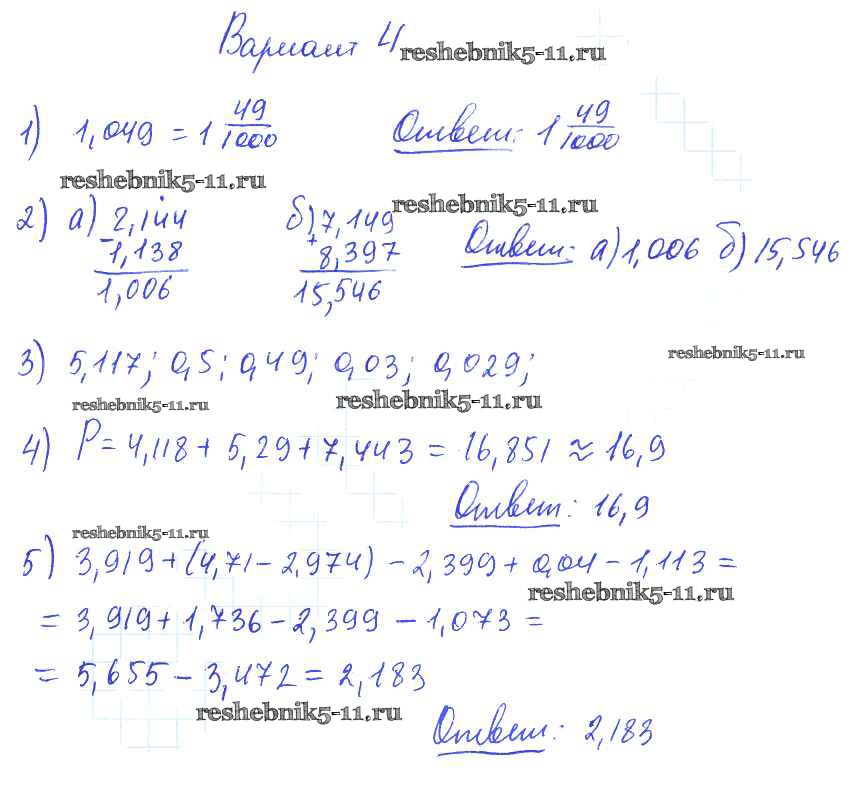 Вариант 4
reshebnik5-11.ru
1) 1,049 = 1 49/1000 Ответ: 1 49/1000
reshebnik5-11.ru
reshebnik5-11.ru
2) а) 2,144 б) 7,149
- 1,138 + 8,397 Ответ: а) 1,006 б) 15,546
1,006 15,546
3) 5,117; 0,5; 0,49; 0,03; 0,029;
reshebnik5-11.ru
reshebnik5-11.ru reshebnik5-11.ru
4) P = 4,118 + 5,29 + 7,443 = 16,851 ≈ 16,9
Ответ: 16,9
reshebnik5-11.ru
5) 3,919 + (4,71 - 2,974) - 2,399 + 0,04 - 1,113 =
reshebnik5-11.ru
= 3,919 + 1,736 - 2,399 - 1,073 =
= 5,655 - 3,472 = 2,183
reshebnik5-11.ru
Ответ: 2,183